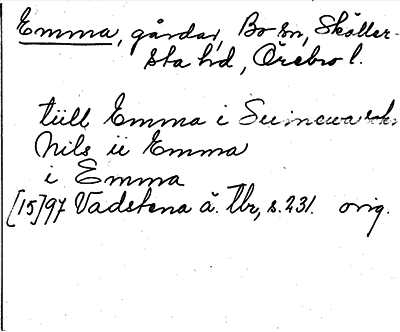 Emma, gårdar, Bo sn, Sköller-
sta hd, Örebro l.
tüll Emma i Suinewa sokn
Nils ü Emma
i Emma
[15]97 Vadstena ä. tbr, s. 231. orig.